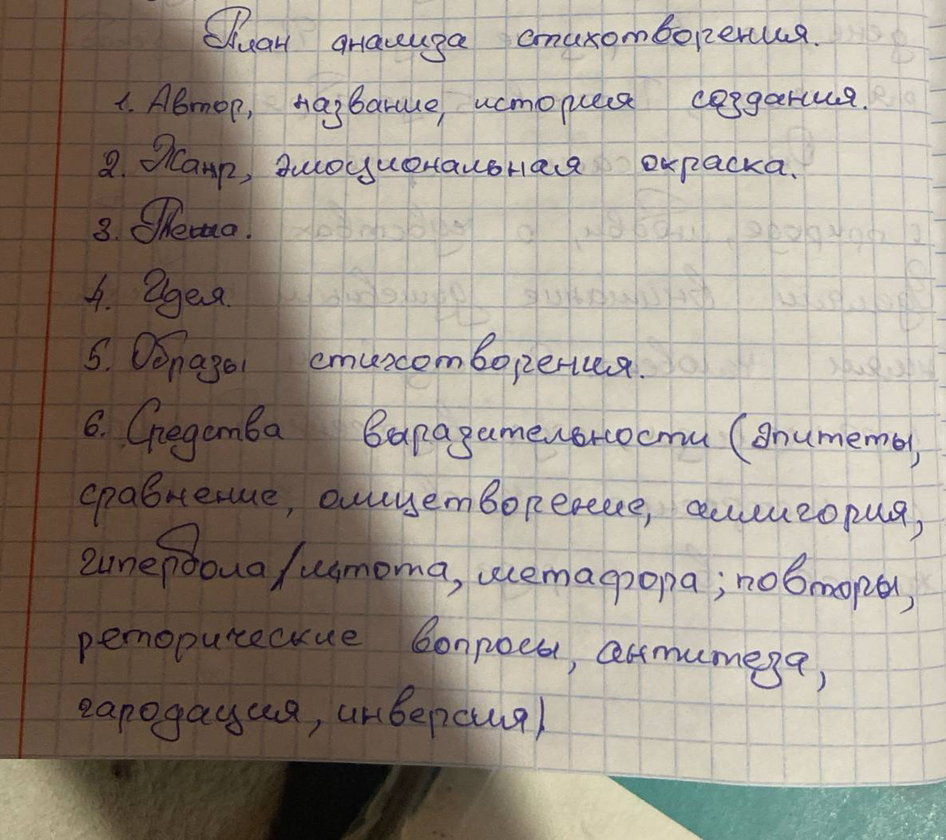 План анализа стихотворения.
1. Автор, название, история создания.
2. Жанр, эмоциональная окраска.
3. Тема.
4. Идея.
5. Образы стихотворения.
6. Средства выразительности (эпитеты,
сравнение, олицетворение, аллигория,
гипербола/литота, метафора; повторы,
реторические вопросы, антитеза,
гародация, инверсия)